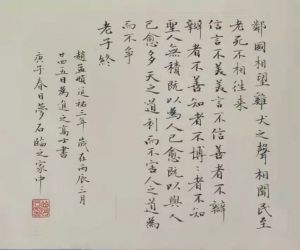 鄰國相望雞犬之聲相聞民至
老死不相往來
信言不美美言不信善者不辯
辯者不善知者不博：者不知
聖人無積既以為人已愈既以與人
已愈多天之道利而不害人之道為
而不爭
老子終
趙孟頫延祐三年歲在丙辰三月
廿四五日為進之高士書
庚子春日夢石臨之家中